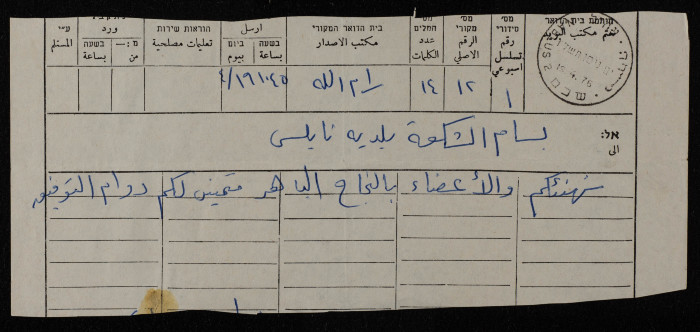 חותמת בית הדואר
ختم مكتب البريد
מס׳ סידורי
رقم تسلسل اسبوعي
١
מס׳ מקורי
الرقم الاصلي
١٢
מס׳ המלים
عدد الكلمات
١٤
בית הדואר המקורי
مكتب الاصدار
رام الله
ارسل
בשעה ביום
بساعة بيوم
١٠٤٥ ٤/١٦
הוראות שירות
تعليمات مصلحية
ورد
בשעה מ:—
بساعة من
ע״י
المستلم
שכם
אל:
الى
بسام الشكعة بلديه نابلس
نهنئكم والأعضاء بالنجاح الباهر متمنين لكم دوام التوفيق